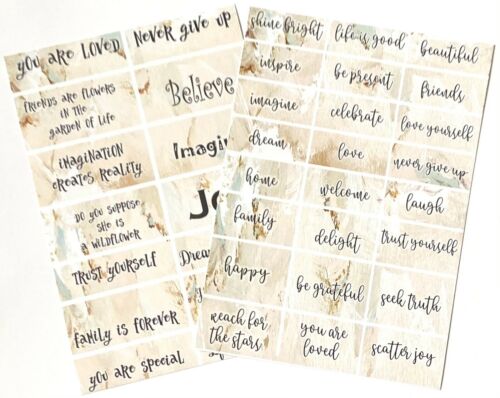 you are loved
Never give up
Friends are flowers
in the
garden of life
Believe
imagination
creates reality
Do you suppose
she is
a wildflower
Trust yourself
Family is forever
you are special
shine bright
life is good
beautiful
inspire
be present
friends
imagine
celebrate
love yourself
dream
love
never give up
home
welcome
laugh
family
delight
trust yourself
happy
be grateful
seek truth
Reach for
the stars
you are
loved
scatter joy